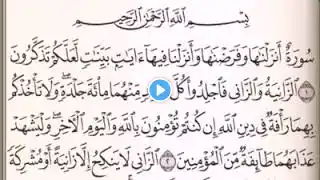 بِسْمِ اللَّهِ الرَّحْمَٰنِ الرَّحِيمِ
سُورَةٌ أَنزَلْنَاهَا وَفَرَضْنَاهَا وَأَنزَلْنَا فِيهَا آيَاتٍ بَيِّنَاتٍ لَّعَلَّكُمْ تَذَكَّرُونَ
١ الزَّانِيَةُ وَالزَّانِي فَاجْلِدُوا كُلَّ وَاحِدٍ مِّنْهُمَا مِائَةَ جَلْدَةٍ وَلَا تَأْخُذْكُم
بِهِمَا رَأْفَةٌ فِي دِينِ اللَّهِ إِن كُنتُمْ تُؤْمِنُونَ بِاللَّهِ وَالْيَوْمِ الْآخِرِ وَلْيَشْهَدْ
عَذَابَهُمَا طَائِفَةٌ مِّنَ الْمُؤْمِنِينَ ٢ الزَّانِي لَا يَنكِحُ إِلَّا زَانِيَةً أَوْ مُشْرِكَةً